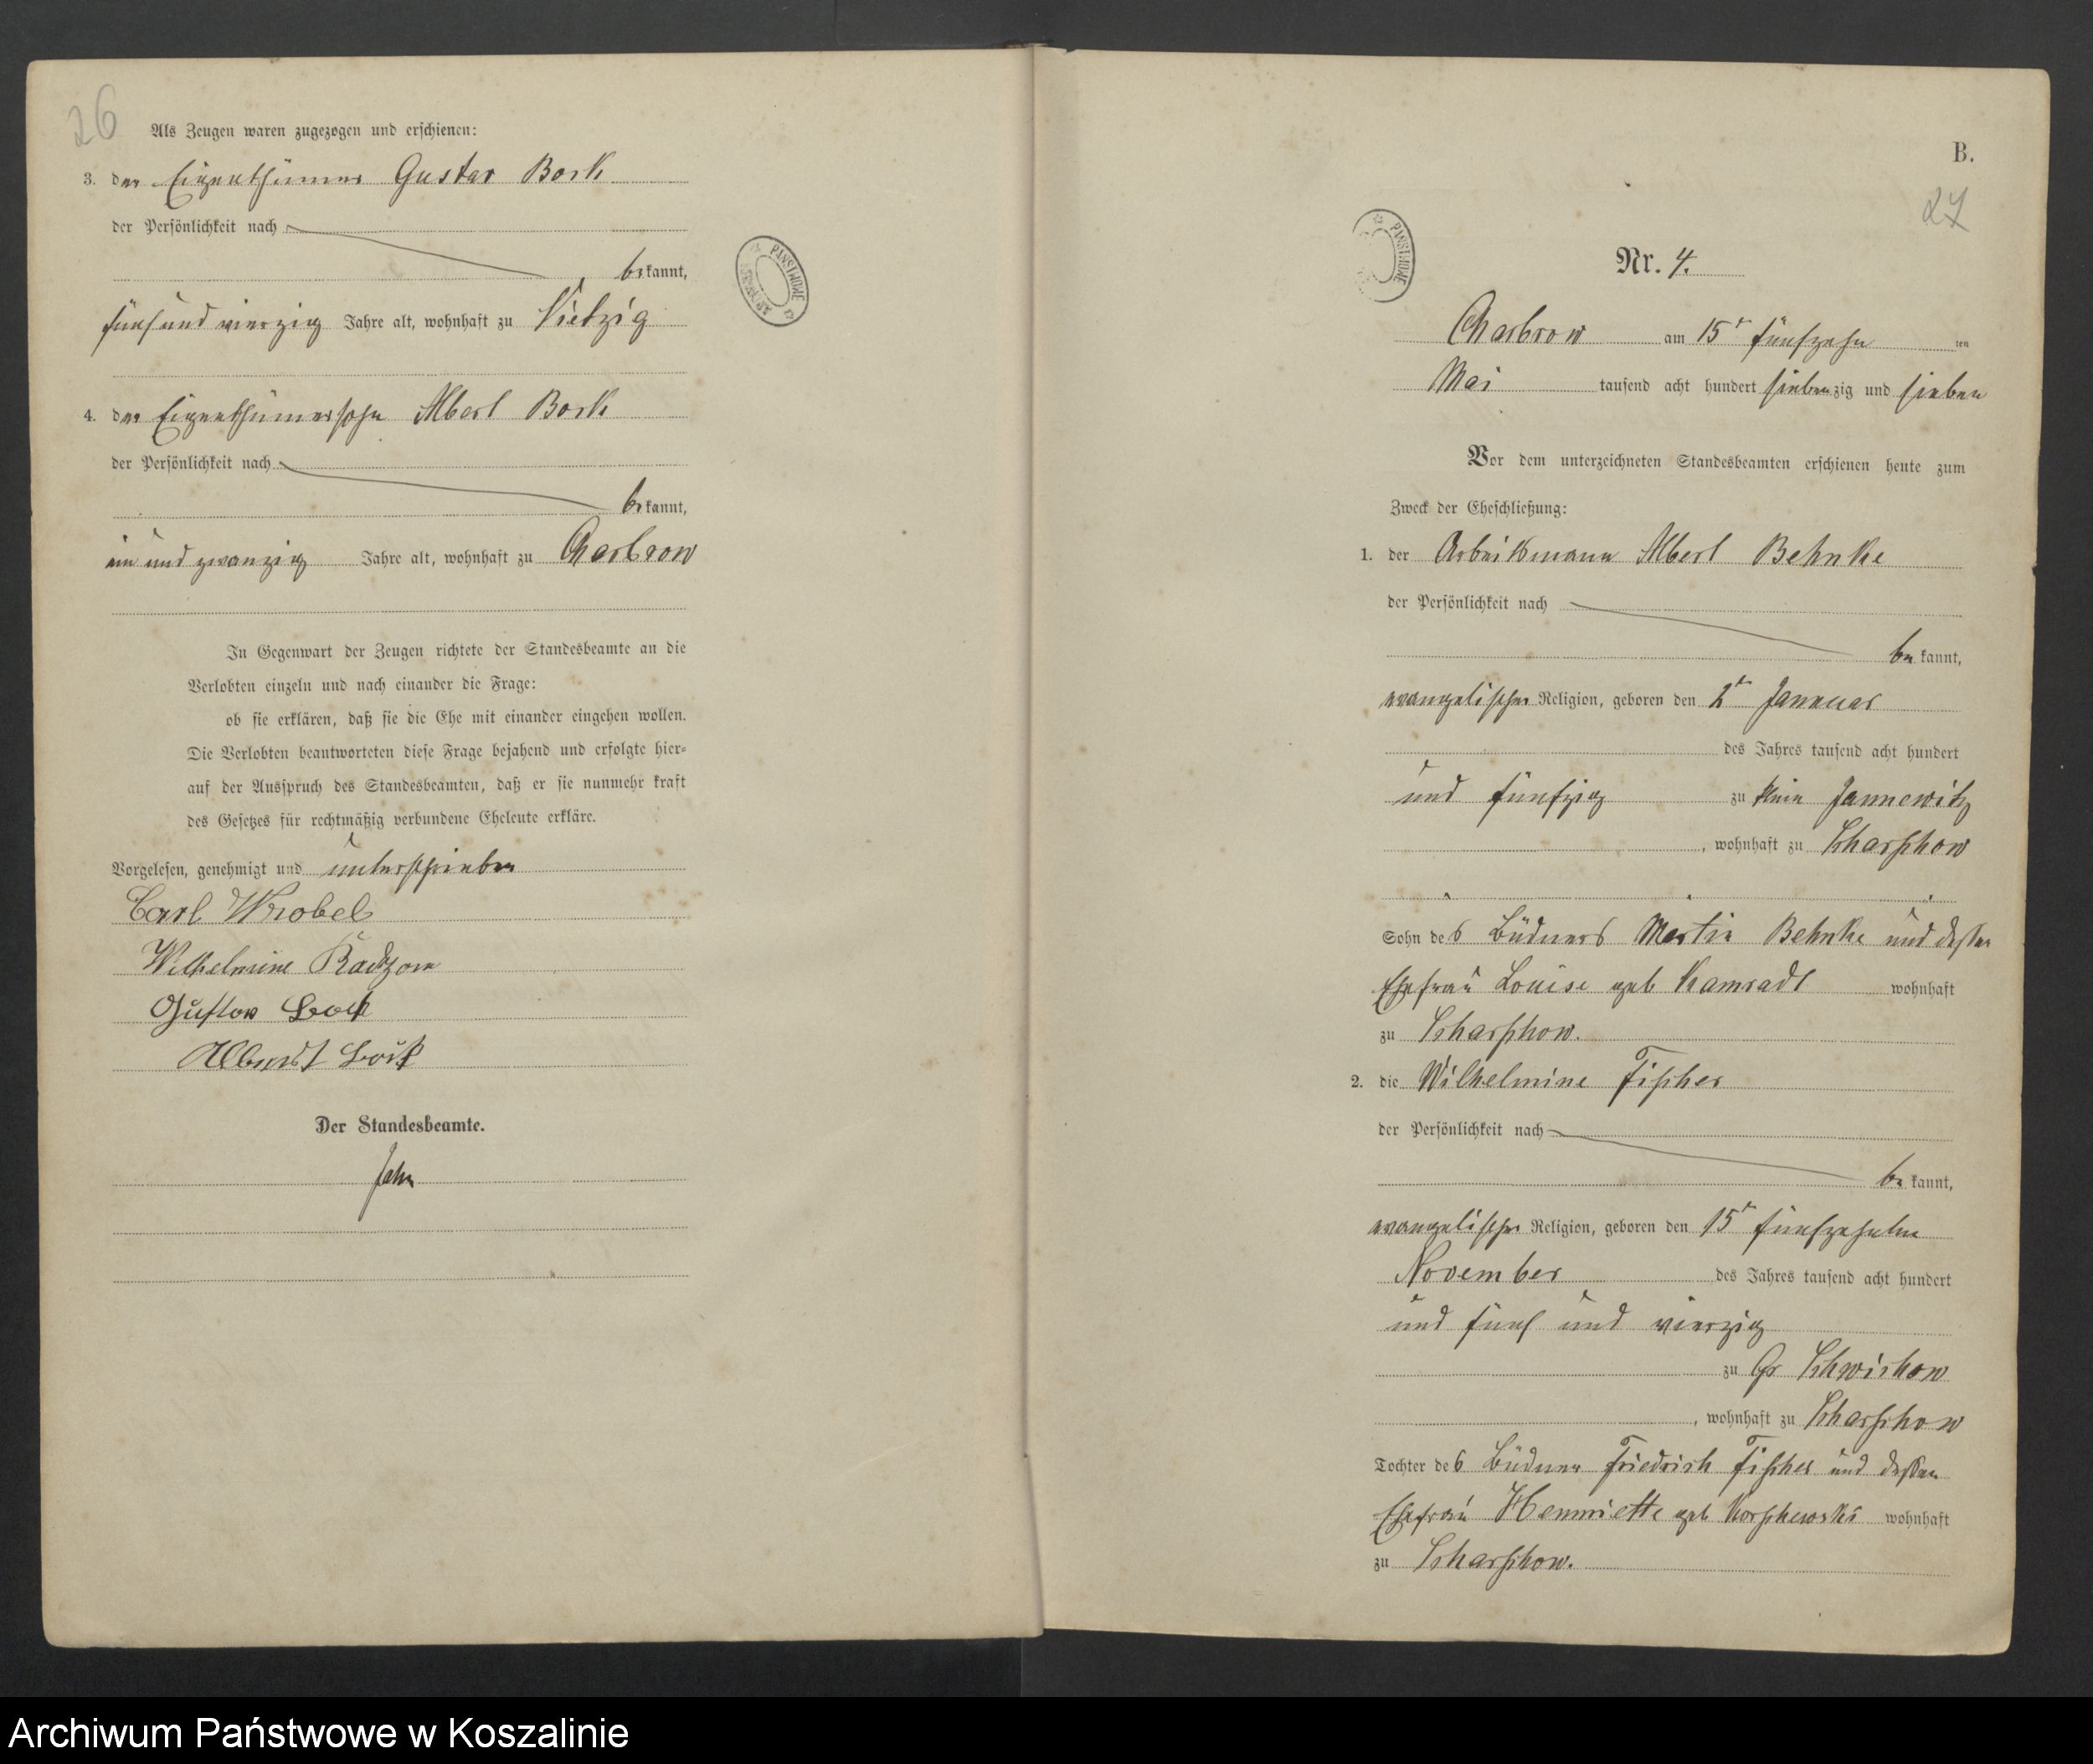 26
Als Zeugen waren zugezogen und erschienen:
3. der Eigenthümer Gustav Bork
der Persönlichkeit nach
bekannt,
fünf und vierzig Jahre alt, wohnhaft zu Vietzig
4. der Eigenthümersohn Albert Bork
der Persönlichkeit nach
bekannt,
ein und zwanzig Jahre alt, wohnhaft zu Charbrow
In Gegenwart der Zeugen richtete der Standesbeamte an die
Verlobten einzeln und nach einander die Frage:
ob sie erklären, daß sie die Ehe mit einander eingehen wollen.
Die Verlobten beantworteten diese Frage bejahend und erfolgte hier-
auf der Ausspruch des Standesbeamten, daß er sie nunmehr kraft
des Gesetzes für rechtmäßig verbundene Eheleute erkläre.
Vorgelesen, genehmigt und unterschrieben
Carl Wrobel
Wilhelmine
Gustav Bork
Albert Bork
Der Standesbeamte.
Jahn
PANSTWOWE
B.
27
PANSTWOWE
Nr. 4.
Charbrow am 15t fünfzehn ten
Mai tausend acht hundert siebenzig und sieben
Vor dem unterzeichneten Standesbeamten erschienen heute zum
Zweck der Eheschließung:
1. der Arbeitsmann Albert Behnke
der Persönlichkeit nach
bekannt,
evangelischer Religion, geboren den 2t Januar
des Jahres tausend acht hundert
und fünfzig zu klein Jannewitz
, wohnhaft zu Scharschow
Sohn des Büdners Martin Behnke und dessen
Ehefrau Louise geb Kamradt wohnhaft
zu Scharschow.
2. die Wilhelmine Fischer
der Persönlichkeit nach
bekannt,
evangelischer Religion, geboren den 15t fünfzehnten
November des Jahres tausend acht hundert
und fünf und vierzig
zu Gr Schwichow
, wohnhaft zu Scharschow
Tochter des Büdner Friedrich Fischer und dessen
Ehefrau Henriette geb Korschewski wohnhaft
zu Scharschow.
Archiwum Państwowe w Koszalinie